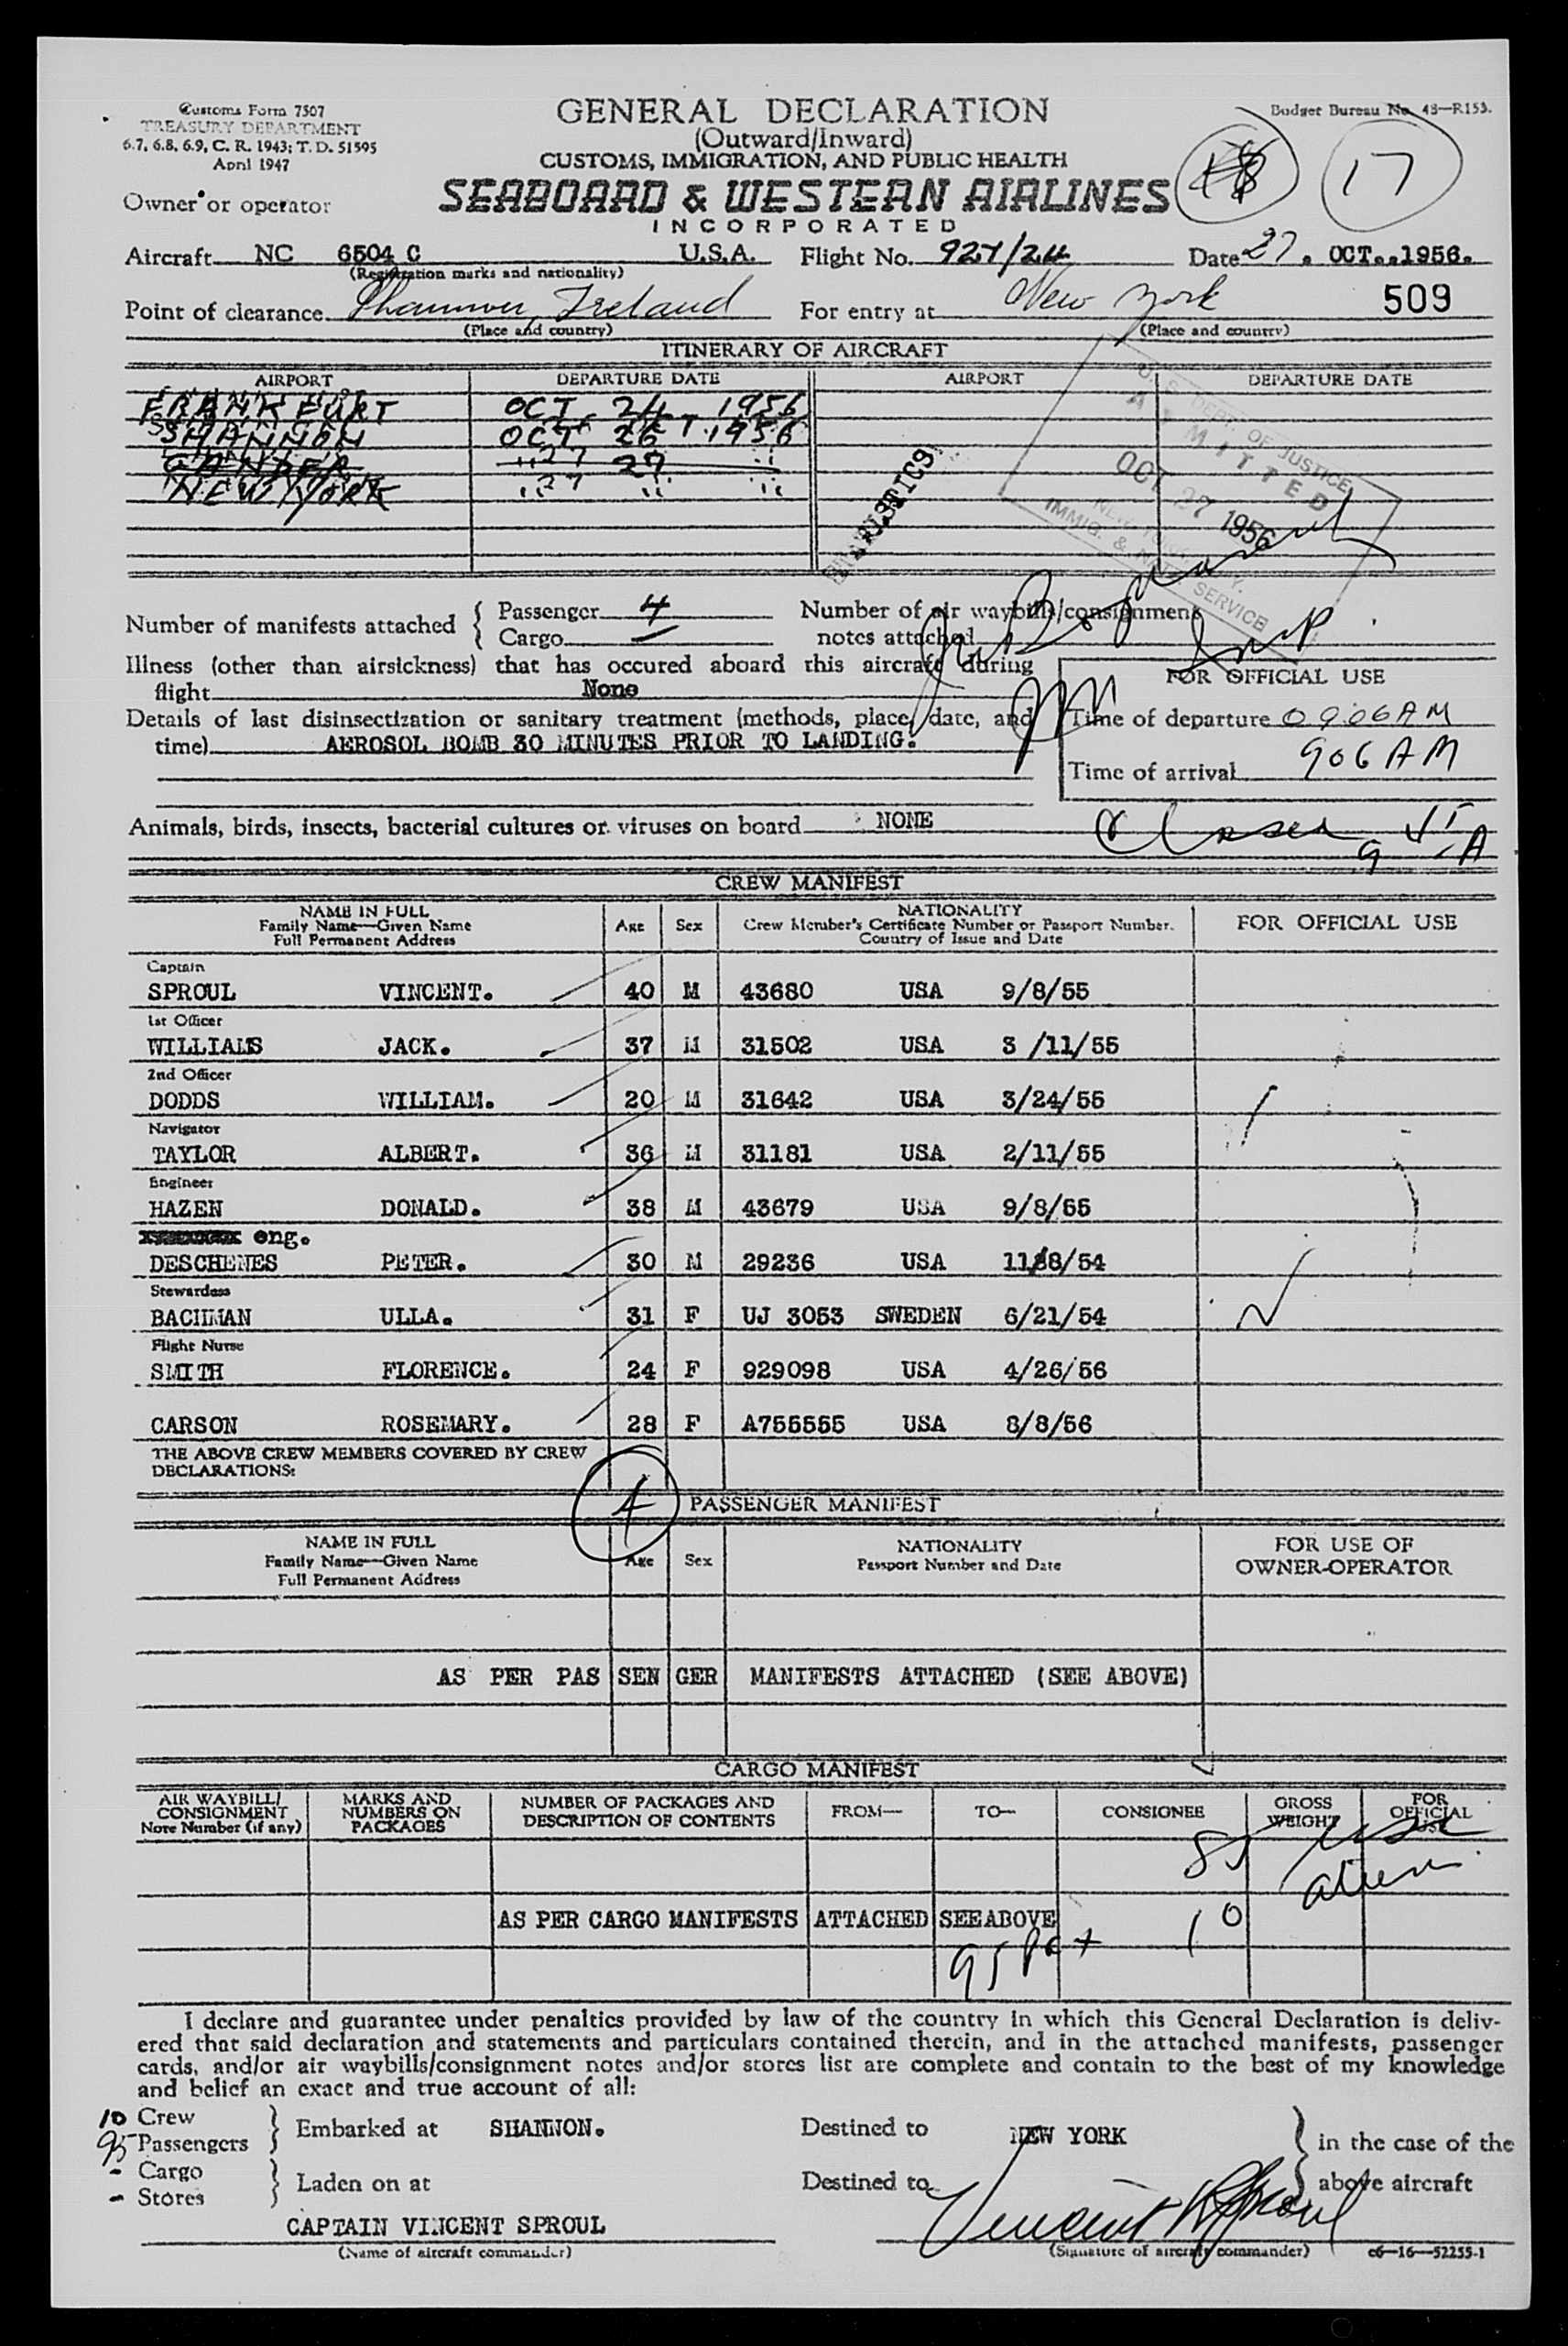 Customs Form 7507
TREASURY DEPARTMENT
6.7, 6.8, 6.9, C. R. 1943; T. D. 51595
April 1947
GENERAL DECLARATION
(Outward/Inward)
CUSTOMS, IMMIGRATION, AND PUBLIC HEALTH
Budget Bureau No. 43—R153.
17
Owner or operator
SEABOARD & WESTERN AIRLINES
INCORPORATED
Aircraft NC 6504 C U.S.A. Flight No. 927/24 Date 27. OCT..1956.
(Registration marks and nationality)
Point of clearance Shannon, Ireland For entry at New York 509
(Place and country) (Place and country)
ITINERARY OF AIRCRAFT
AIRPORT DEPARTURE DATE AIRPORT DEPARTURE DATE
FRANKFURT OCT. 24 1956
SHANNON OCT 26 1956
GANDER " 27 "
NEW YORK " 27 "
STATISTICS
U. S. DEPT. OF JUSTICE
ADMITTED
OCT 27 1956
NEW YORK, N.Y.
IMMIG. & NATZ. SERVICE
Number of manifests attached { Passenger 4
Cargo —
Number of air waybills/consignment
notes attached
Illness (other than airsickness) that has occured aboard this aircraft during
flight None
Details of last disinsectization or sanitary treatment (methods, place, date, and
time) AEROSOL BOMB 30 MINUTES PRIOR TO LANDING.
FOR OFFICIAL USE
Time of departure 0906AM
Time of arrival 906 AM
Animals, birds, insects, bacterial cultures or viruses on board NONE
CREW MANIFEST
NAME IN FULL
Family Name—Given Name
Full Permanent Address
Age Sex
NATIONALITY
Crew Member's Certificate Number or Passport Number.
Country of Issue and Date
FOR OFFICIAL USE
Captain
SPROUL VINCENT. 40 M 43680 USA 9/8/55
1st Officer
WILLIAMS JACK. 37 M 31502 USA 3 /11/55
2nd Officer
DODDS WILLIAM. 20 M 31642 USA 3/24/55
Navigator
TAYLOR ALBERT. 36 M 31181 USA 2/11/55
Engineer
HAZEN DONALD. 38 M 43679 USA 9/8/55
eng.
DESCHENES PETER. 30 M 29236 USA 11/8/54
Stewardess
BACHMAN ULLA. 31 F UJ 3053 SWEDEN 6/21/54
Flight Nurse
SMITH FLORENCE. 24 F 929098 USA 4/26/56
CARSON ROSEMARY. 28 F A755555 USA 8/8/56
THE ABOVE CREW MEMBERS COVERED BY CREW
DECLARATIONS:
4
PASSENGER MANIFEST
NAME IN FULL
Family Name—Given Name
Full Permanent Address
Age Sex
NATIONALITY
Passport Number and Date
FOR USE OF
OWNER-OPERATOR
AS PER PAS SEN GER MANIFESTS ATTACHED (SEE ABOVE)
CARGO MANIFEST
AIR WAYBILL/
CONSIGNMENT
Note Number (if any)
MARKS AND
NUMBERS ON
PACKAGES
NUMBER OF PACKAGES AND
DESCRIPTION OF CONTENTS
FROM— TO— CONSIGNEE
GROSS
WEIGHT
FOR
OFFICIAL
USE
85
alien
AS PER CARGO MANIFESTS ATTACHED SEEABOVE
10
95
I declare and guarantee under penalties provided by law of the country in which this General Declaration is deliv-
ered that said declaration and statements and particulars contained therein, and in the attached manifests, passenger
cards, and/or air waybills/consignment notes and/or stores list are complete and contain to the best of my knowledge
and belief an exact and true account of all:
10 Crew
95 Passengers } Embarked at SHANNON. Destined to NEW YORK } in the case of the
- Cargo
- Stores } Laden on at Destined to above aircraft
CAPTAIN VINCENT SPROUL Vincent Sproul
(Name of aircraft commander) (Signature of aircraft commander) c6—16—52255-1